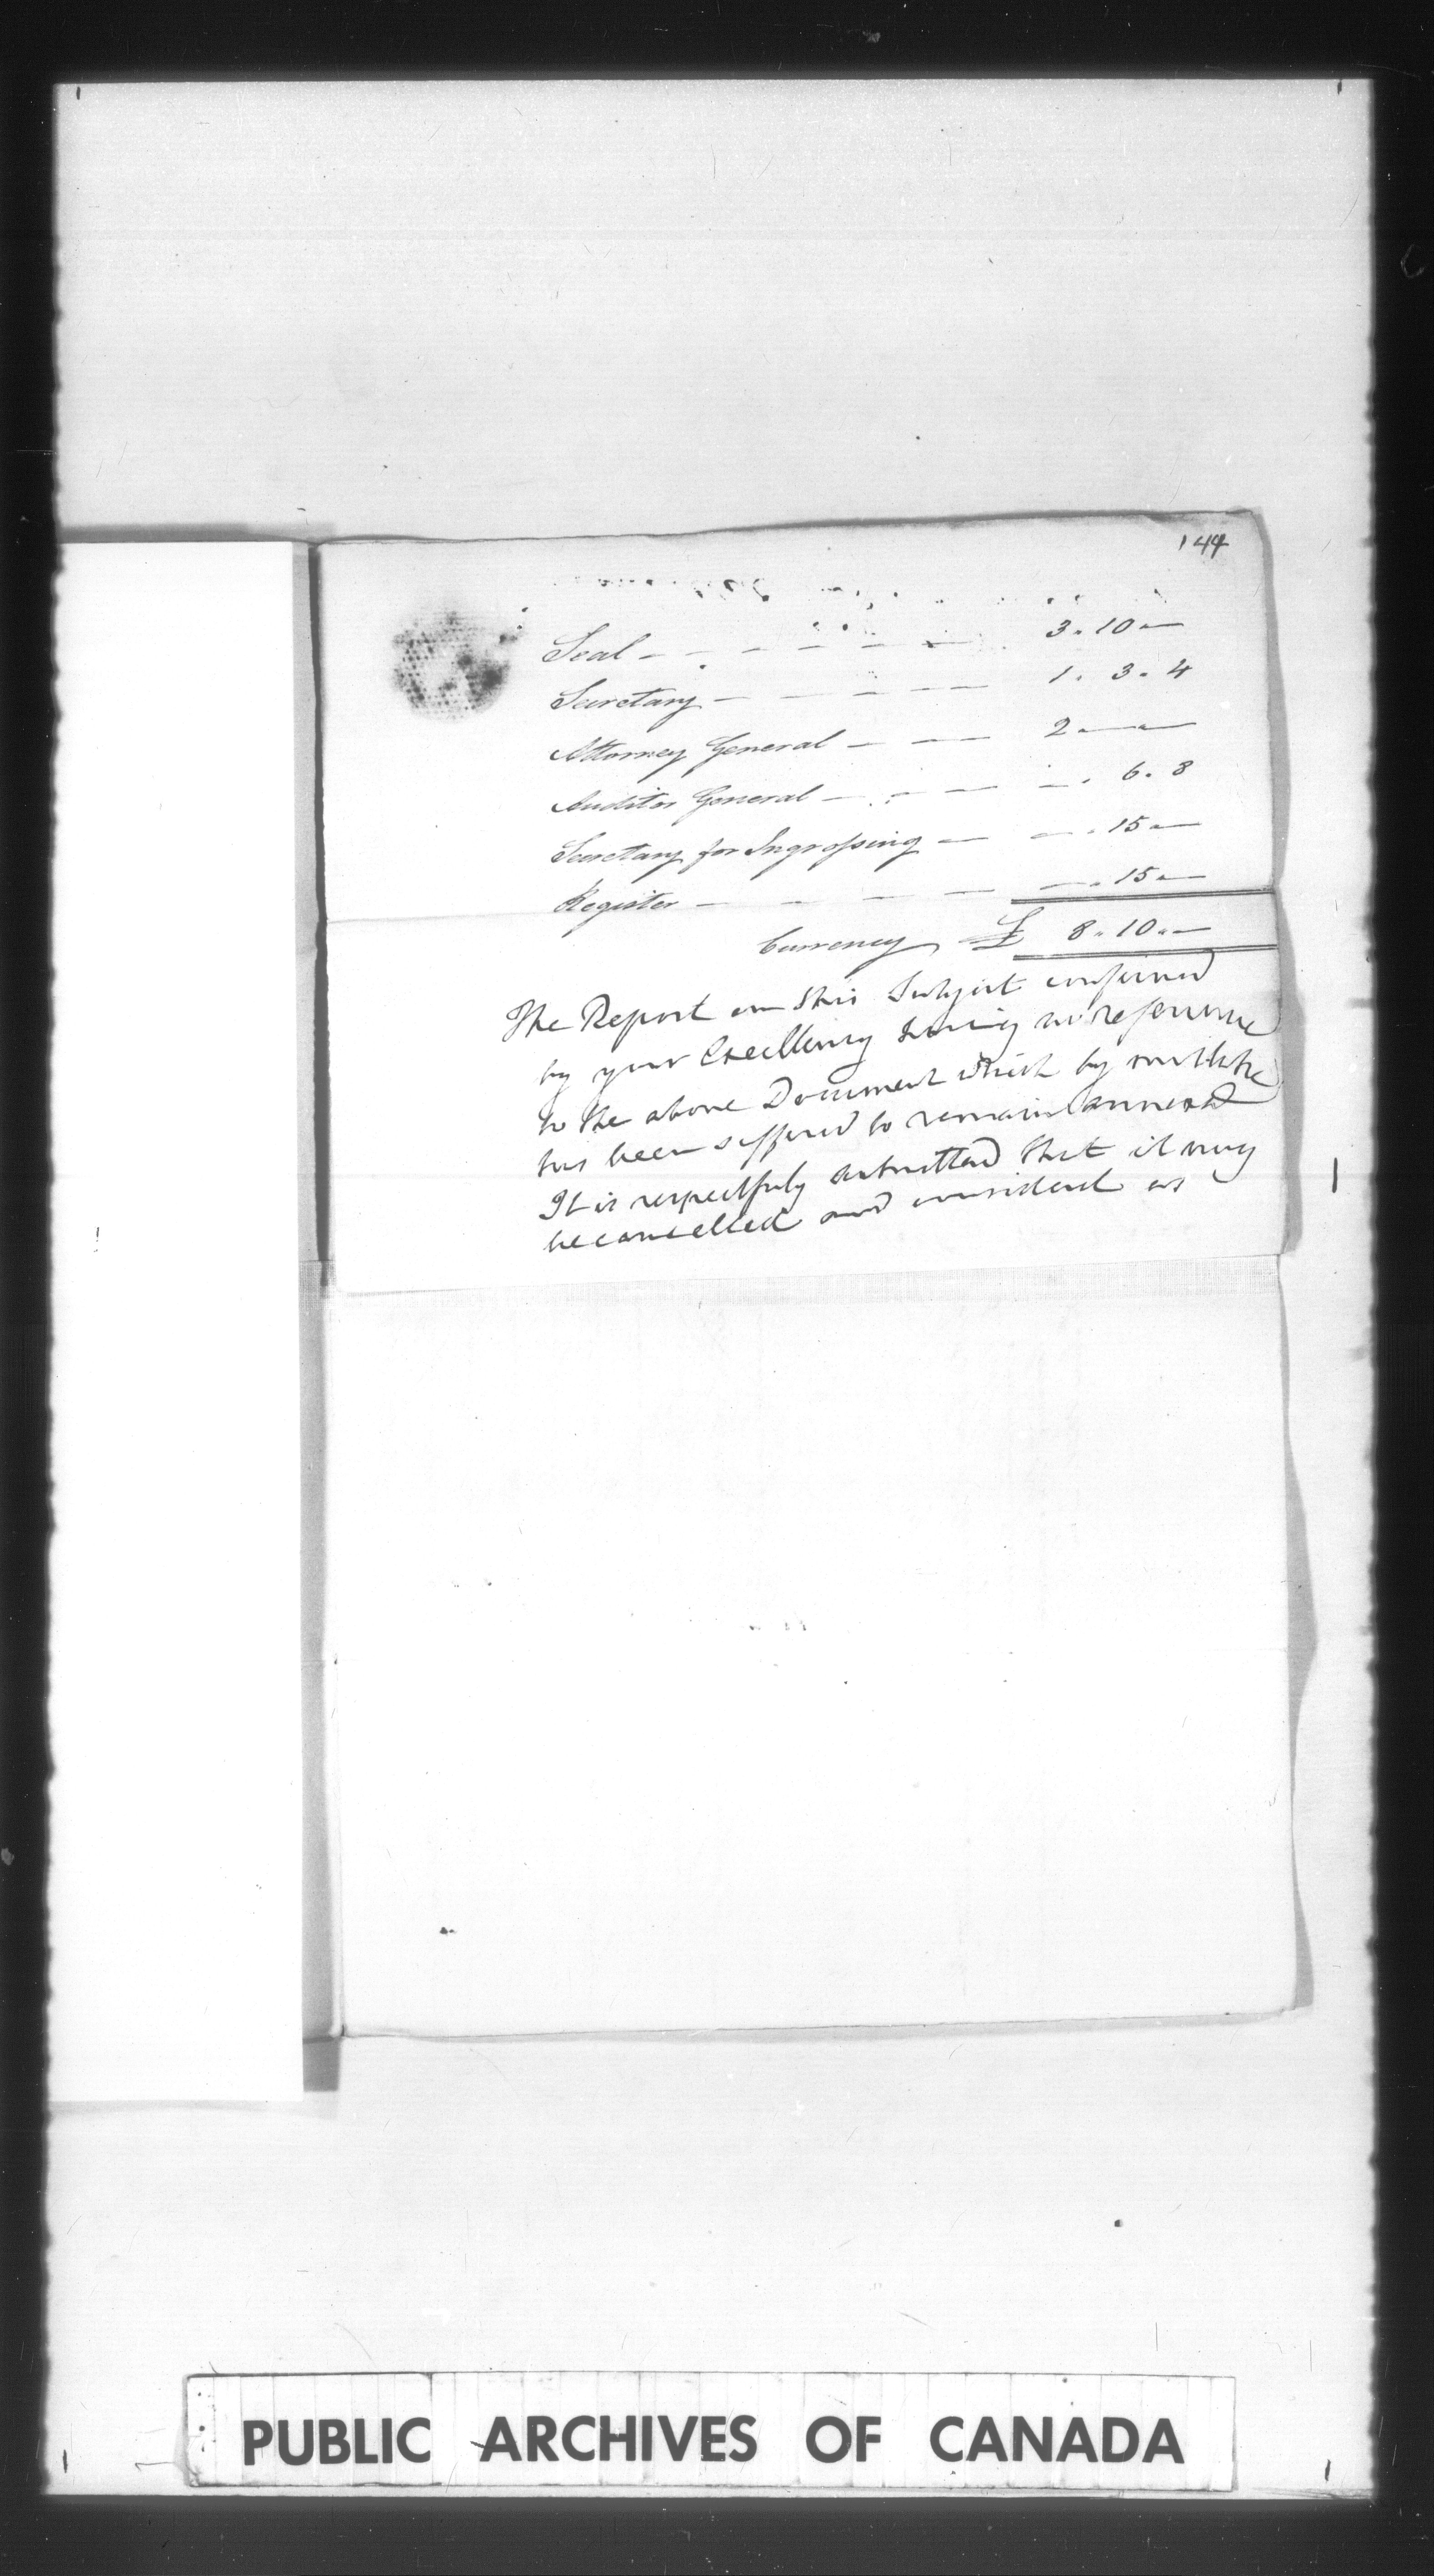 144
Seal - - - - - - 3 " 10 " -
Secretary - - - - - 1 " 3 " 4
Attorney General - - - 2 " - " -
Auditor General - - - - - " 6 " 8
Secretary for Ingrossing - - " 15 " -
Register - - - - - " 15 " -
Currency £ 8 " 10 " -
The Report on this Subject confirmed
by your Excellency having no reference
to the above Document which by mistake
has been suffered to remain annexed
It is respectfuly submitted that it may
be cancelled and considered as
PUBLIC ARCHIVES OF CANADA